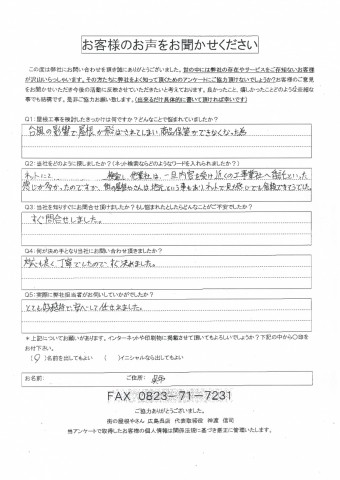 お客様のお声をお聞かせください
この度は弊社にお問い合わせを頂き誠にありがとうございました。世の中には弊社の存在やサービスをご存知ないお客様
が沢山いらっしゃいます。その方たちに弊社をよく知って頂くためのアンケートにご協力頂けないでしょうか？お客様のご意
見をお聞かせいただき今後の活動に反映させていただきたいと考えております。良かったこと、嬉しかったことどのような些細な
事でも結構です。是非ご協力お願い致します。(出来るだけ具体的に書いて頂ければ幸いです)
Q1：屋根工事を検討したきっかけは何ですか？どんなことで悩まれていましたか？
台風の影響で屋根が飛ばされてしまい 商品保管ができなくなった為
Q2：当社をどのように探しましたか？(ネット検索ならどのようなワードを入れられましたか？)
ネットにて 検索し 他業社は、一旦内容を受け近くの工事業社へ委託といった
感じが多かったのですが、街の屋根やさんは
Q3：当社を知りすぐにお問合せ頂けましたか？もし悩まれたとしたらどんなことがご不安でしたか？
すぐ問合せしました。
Q4：何が決め手となり当社にお問い合わせ頂きましたか？
対応も良く 丁寧でしたので すぐ決めました。
Q5：実際に弊社担当者がお伺いしていかがでしたか？
とても 安心して任せれました。
＊上記についてお願いがあります。インターネットや印刷物に掲載させて頂いてもよろしいでしょうか？下記の中から○印を
お付け下さい。
( ○ )名前を出してもよい ( )イニシャルなら出してもよい
お名前: ご住所: 呉市
FAX 0823-71-7231
ご協力ありがとうございました。
街の屋根やさん 広島呉店 代表取締役 神渡 信司
当アンケートで取得したお客様の個人情報は関係法規に基づき厳正に管理いたします。